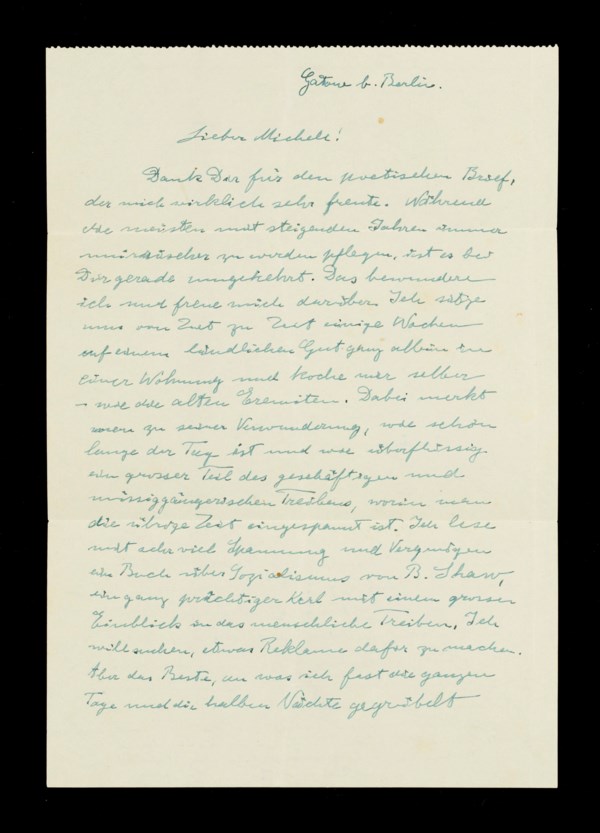 Gatow b. Berlin.
Lieber Michele!
Dank Dir für den poetischen Brief,
der mich wirklich sehr freute. Während
die meisten mit steigenden Jahren immer
zu werden pflegen, ist es bei
Dir gerade umgekehrt. Das bewundere
ich und freue mich darüber. Ich sitze
nun von Zeit zu Zeit einige Wochen
auf einem ländlichen Gut ganz allein in
einer Wohnung und koche mir selber
– wie die alten Eremiten. Dabei merkt
man zu seiner Verwunderung, wie schön
lange der Tag ist und wie überflüssig
ein grosser Teil des geschäftigen und
müssiggängerischen Treibens, worin man
die übrige Zeit eingespannt ist. Ich lese
mit sehr viel Spannung und Vergnügen
ein Buch über Sozialismus von B. Shaw,
ein ganz prächtiger Kerl mit einem grossen
Einblick in das menschliche Treiben. Ich
will suchen, etwas Reklame dafür zu machen.
Aber das Beste, an was ich fast die ganzen
Tage und die halben Nächte gegrübelt